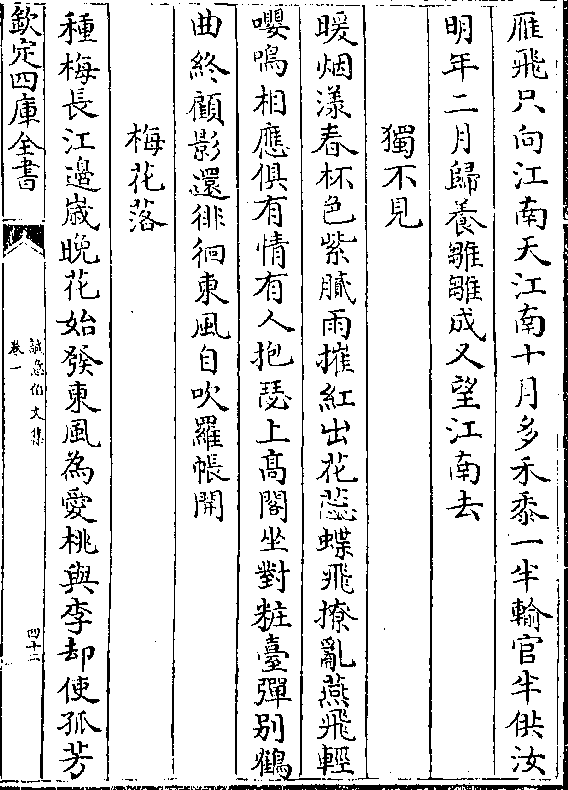 雁飛只向江南天江南十月多禾黍一半輸官半供汝
明年二月歸養雛雛成又望江南去
獨不見
暖烟漾春杯色紫膩雨摧紅出花蕊蝶飛撩亂燕飛輕
嚶鳴相應俱有情有人抱瑟上高閣坐對粧臺彈別鶴
曲終顧影還徘徊東風自吹羅帳開
梅花落
種梅長江邊歲晚花始發東風為愛桃與李却使孤芳
欽定四庫全書
誠意伯文集
卷一
四十二